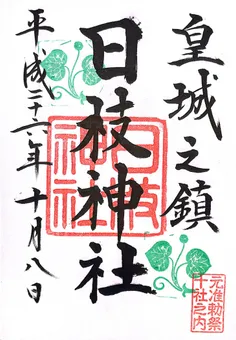 皇城之鎮
日枝神社
平成二十六年十月八日
日枝神社
元准勅祭
十社之内